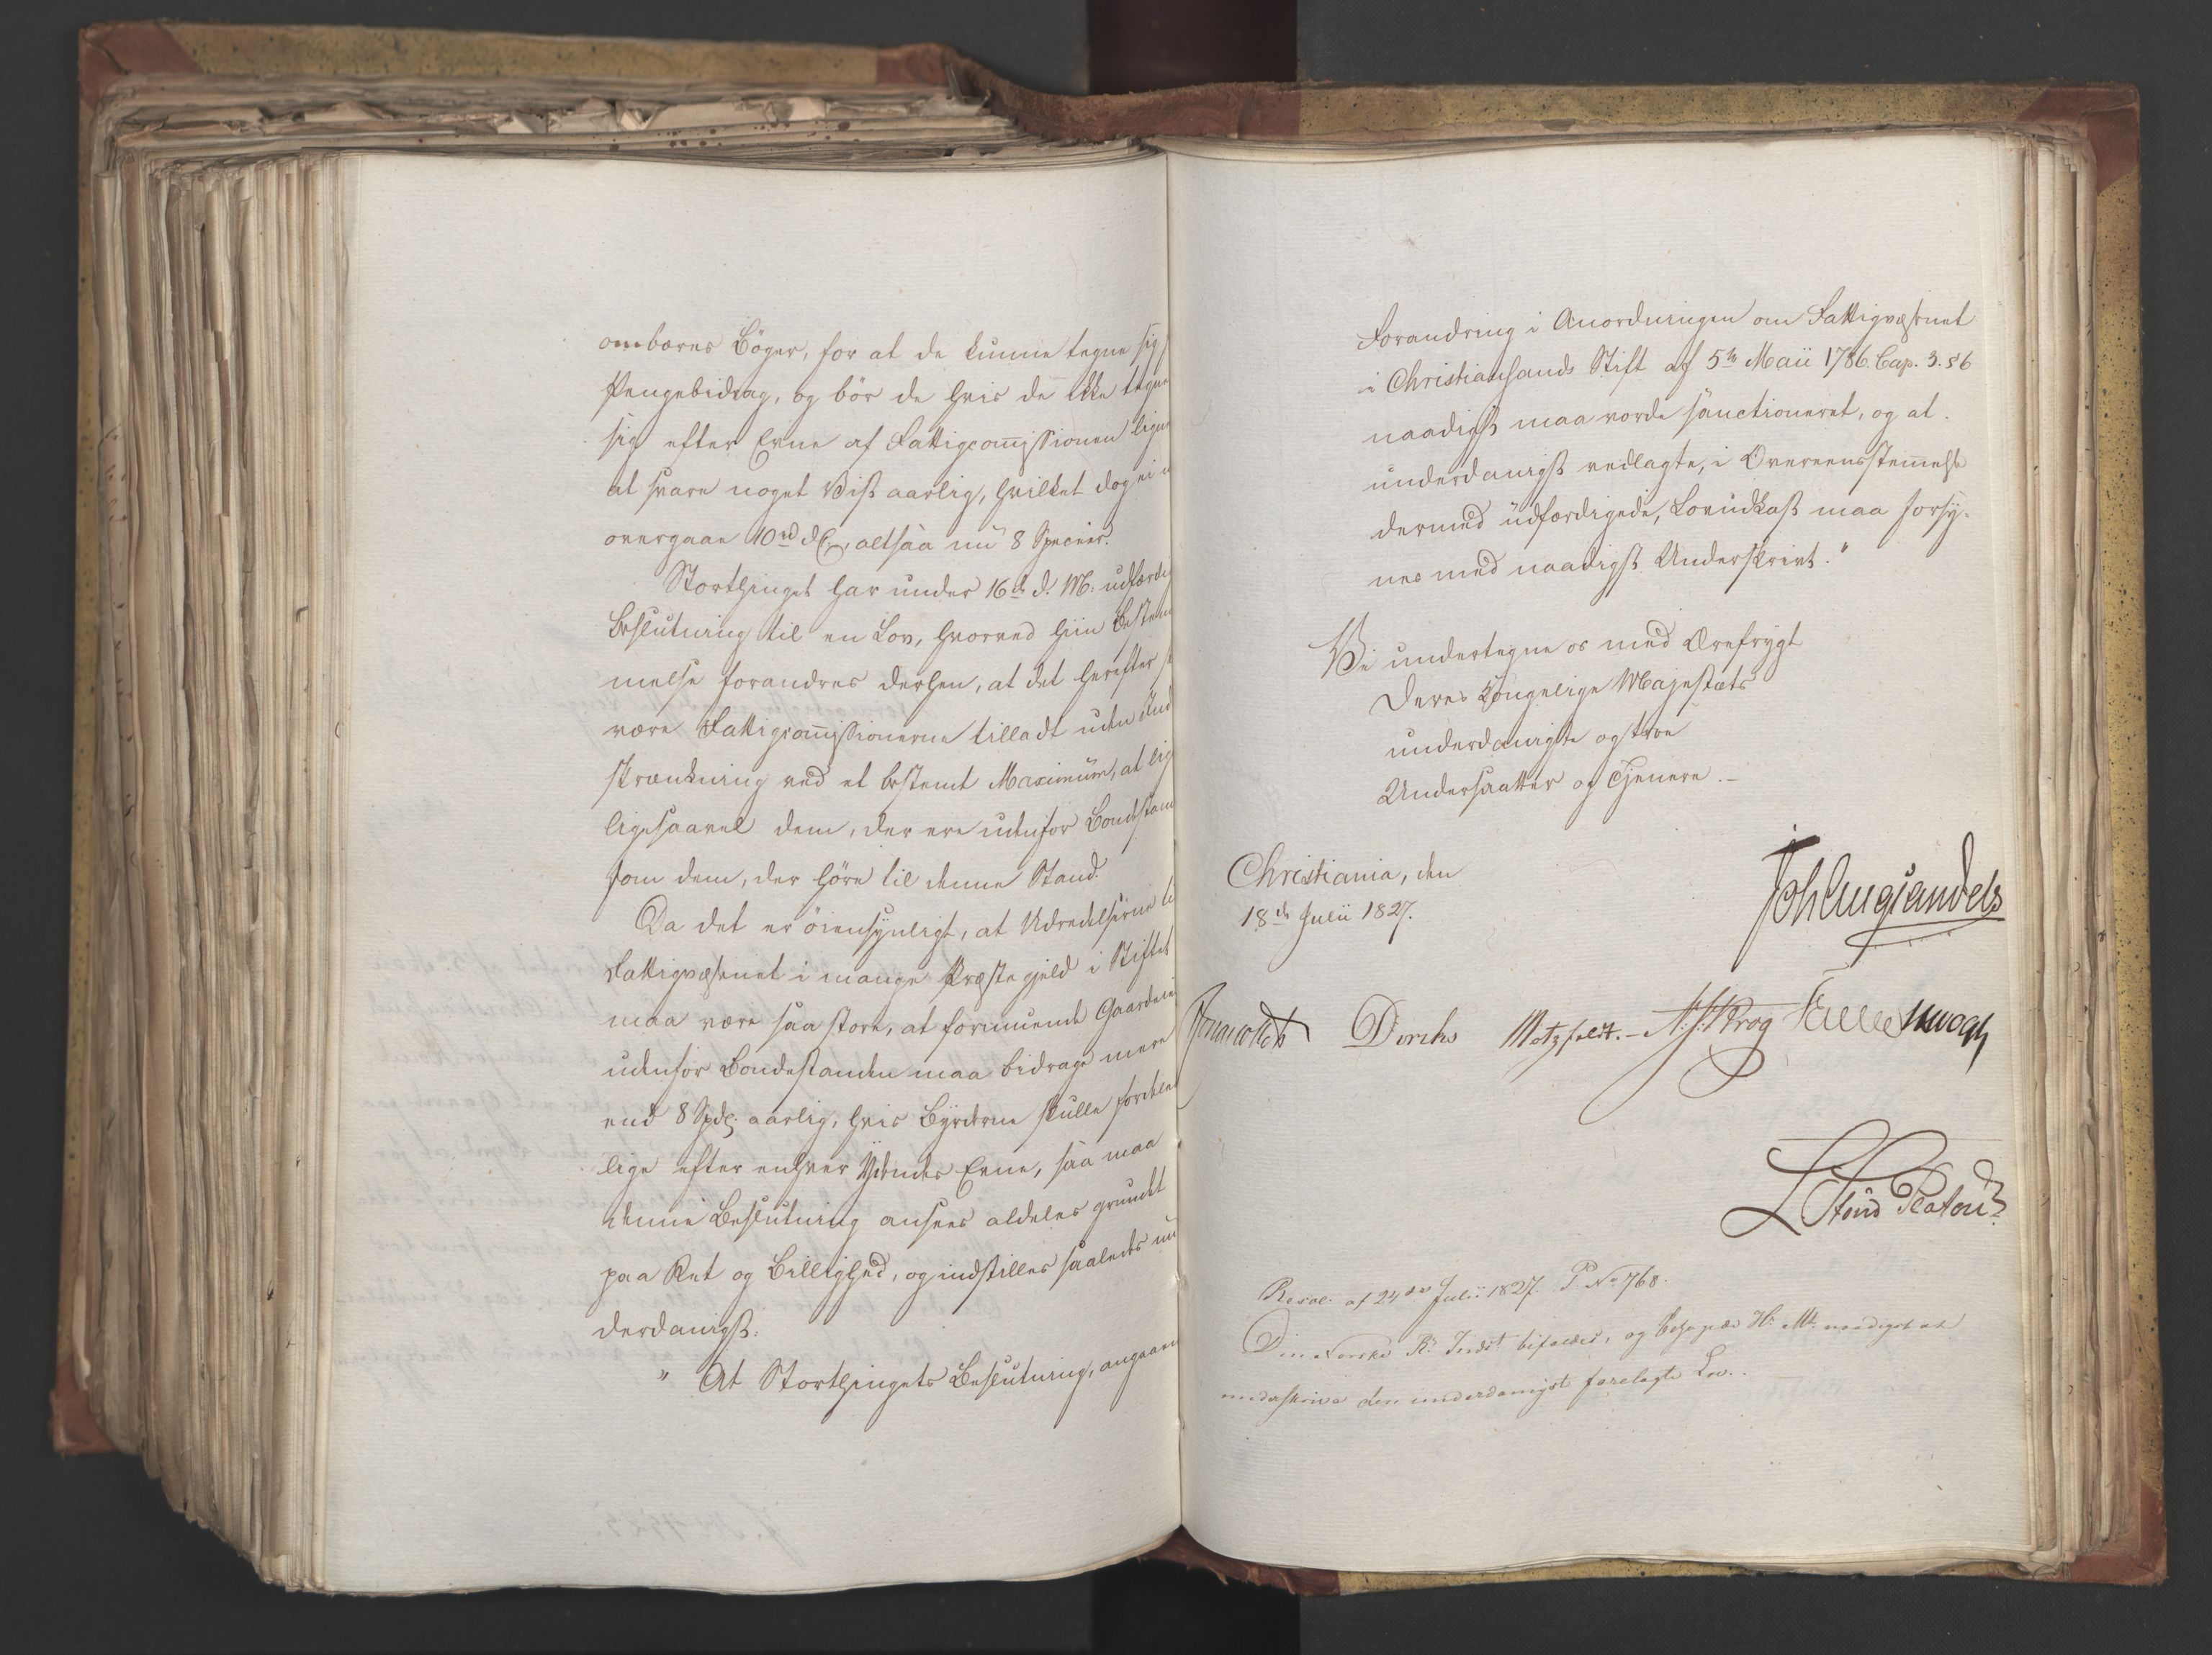 ombæres Bøger, for at de kunne tegne sig
Pengebidrag, og bör de hvis de ikke tegne
sig efter Evne af Fattigcommissionen ligne
at svare noget vist aarlig, hvilket dog ei
overgaae 10 rd altsaa nu 8 Specier.
Storthinget har under 16de d. M. udfærdi
Beslutning til en Lov, hvorved hiin Bestem
melse forandres derhen, at det herefter
være Fattigcommissionerne tilladt uden Ind
skrænkning ved et bestemt Maximum, at lig
ligesaavel dem, der ere udenfor Bondestand
som dem, der høre til denne Stand.
Da det er øiensynligt, at Udredelserne ti
Fattigvæsenet i mange Præstegjeld i Stiftet
maa være saa store, at formuende Gaardei
udenfor Bondestanden maa bidrage mere
end 8 Spd. aarlig, hvis Byrderne skulle fordeles
lige efter enhver Ydendes Evne, saa maa
denne Beslutning ansees aldeles grundet
paa Ret og Billighed, og indstilles saaledes un
derdanigst:
" At Storthingets Beslutning, angaaen
Forandring i Anordningen om Fattigvæsenet
i Christiansands Stift af 5te Maii 1786. Cap. 3. § 6
naadigst maa vorde sanctioneret, og at
underdanigst vedlagte, i Overeensstemmelse
dermed udfærdigede, Lovudkast maa forsy-
nes med naadigst Underskrivt."
Vi undertegne os med Ærefrygt
Deres Kongelige Majestæts
underdanigste og troe
Undersaatter og Tjenere.-
Christiania, den
18de Julii 1827.
Joh Collett Diriks Motzfeldt.- A. J. Krog
L Stoud Platou
Resol: af 24de Julii 1827. P. No 768.
Den norske R. Indst bifaldes, og behager H: Mt: naadigst at
underskrive den underdanigst forelagte Lov.